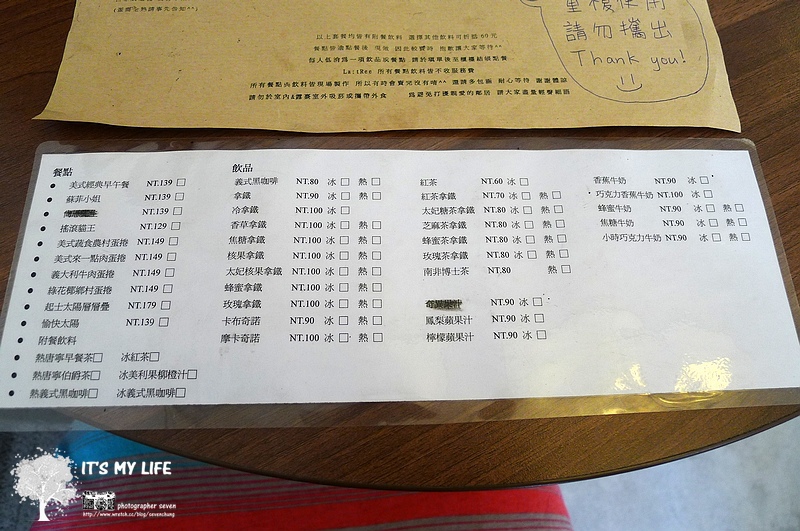 (蛋過全熟請事先告知^^)
重複使用
請勿攜出
Thank you!
以上套餐均皆有附餐飲料 選擇其他飲料可折抵60元
餐點皆為點餐後 現做 因此較費時 抱歉讓大家等待^^
每人低消為一項飲品或餐點 請於購單後至櫃檯結帳點餐
La:tRee 所有餐點飲料皆不收服務費
所有餐點肉飲料皆現場製作 所以有時會賣完沒有唷^^ 還請多包涵 耐心等待 謝謝體諒
請勿於室內&露臺室外吸菸或攜帶外食 為避免打擾親愛的鄰居 請大家盡量輕聲細語
餐點
美式經典早午餐 NT.139 □
蘇菲小姐 NT.139 □
NT.139 □
搖滾貓王 NT.129 □
美式蔬食農村蛋捲 NT.149 □
美式來一點肉蛋捲 NT.149 □
義大利牛肉蛋捲 NT.149 □
綠花椰鄉村蛋捲 NT.149 □
起士太陽層層疊 NT.179 □
愉快太陽 NT.139 □
附餐飲料
熱唐寧早餐茶□ 冰紅茶□
熱唐寧伯爵茶□ 冰美利果柳橙汁□
熱義式黑咖啡□ 冰義式黑咖啡□
飲品
義式黑咖啡 NT.80 冰□ 熱□
拿鐵 NT.90 冰□ 熱□
冷拿鐵 NT.100 冰□
香草拿鐵 NT.100 冰□ 熱□
焦糖拿鐵 NT.100 冰□ 熱□
核果拿鐵 NT.100 冰□ 熱□
太妃核果拿鐵 NT.100 冰□ 熱□
蜂蜜拿鐵 NT.100 冰□ 熱□
玫瑰拿鐵 NT.100 冰□ 熱□
卡布奇諾 NT.90 冰□ 熱□
摩卡奇諾 NT.100 冰□ 熱□
紅茶 NT.60 冰□
紅茶拿鐵 NT.70 冰□ 熱□
太妃糖茶拿鐵 NT.80 冰□ 熱□
芝麻茶拿鐵 NT.80 冰□ 熱□
蜂蜜茶拿鐵 NT.80 冰□ 熱□
玫瑰茶拿鐵 NT.80 冰□ 熱□
南非博士茶 NT.80 熱□
NT.90 冰□
鳳梨蘋果汁 NT.90 冰□
檸檬蘋果汁 NT.90 冰□
香蕉牛奶 NT.90 冰□
巧克力香蕉牛奶 NT.100 冰□
蜂蜜牛奶 NT.90 冰□ 熱□
焦糖牛奶 NT.90 冰□ 熱□
小時巧克力牛奶 NT.90 冰□ 熱□
IT'S MY LIFE
photographer seven
http://www.wretch.cc/blog/sevenchung